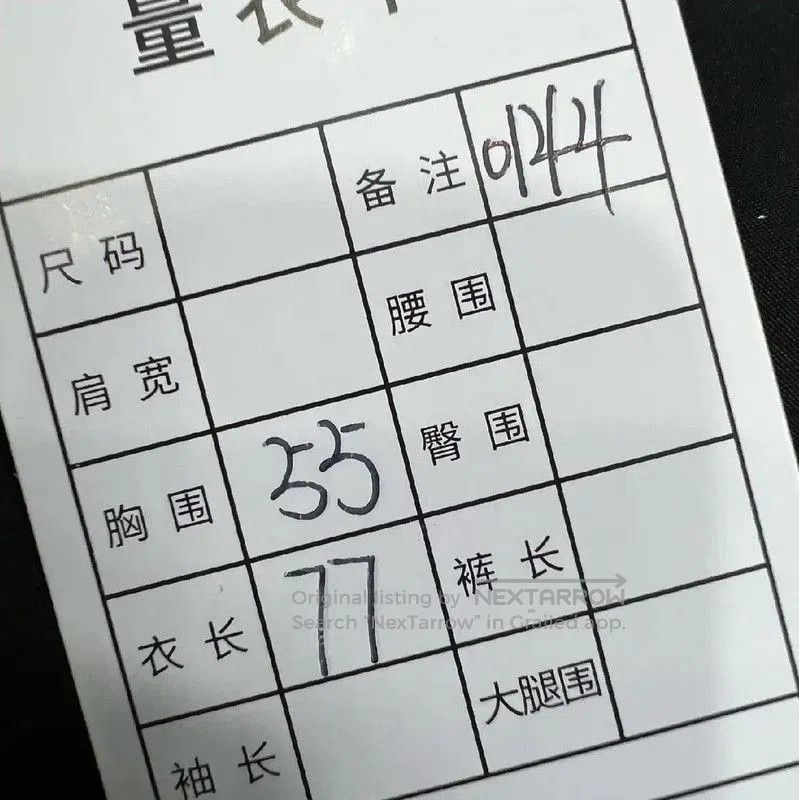 量衣卡
尺码 备注 0144
肩宽 腰围
胸围 55 臀围
衣长 77 裤长
Original listing by NEXTARROW
Search "NexTarrow" in Grailed app.
大腿围
袖长